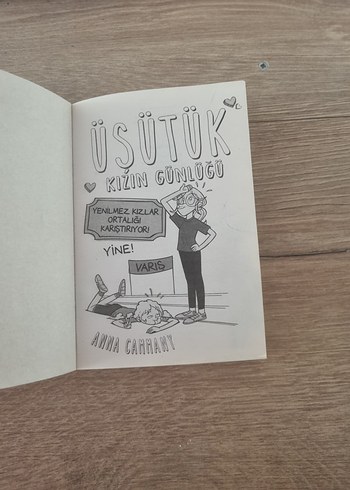 ÜŞÜTÜK
KIZIN GÜNLÜĞÜ
YENİLMEZ KIZLAR
ORTALIĞI
KARIŞTIRIYOR!
YİNE!
VARIŞ
ANNA CAMMANY